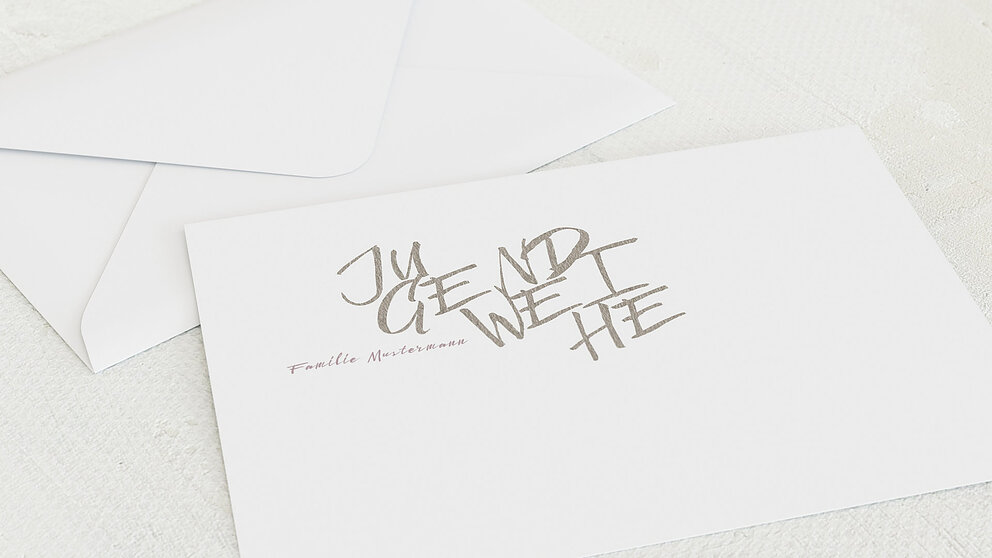 JUGENDWEIHE
Familie Mustermann